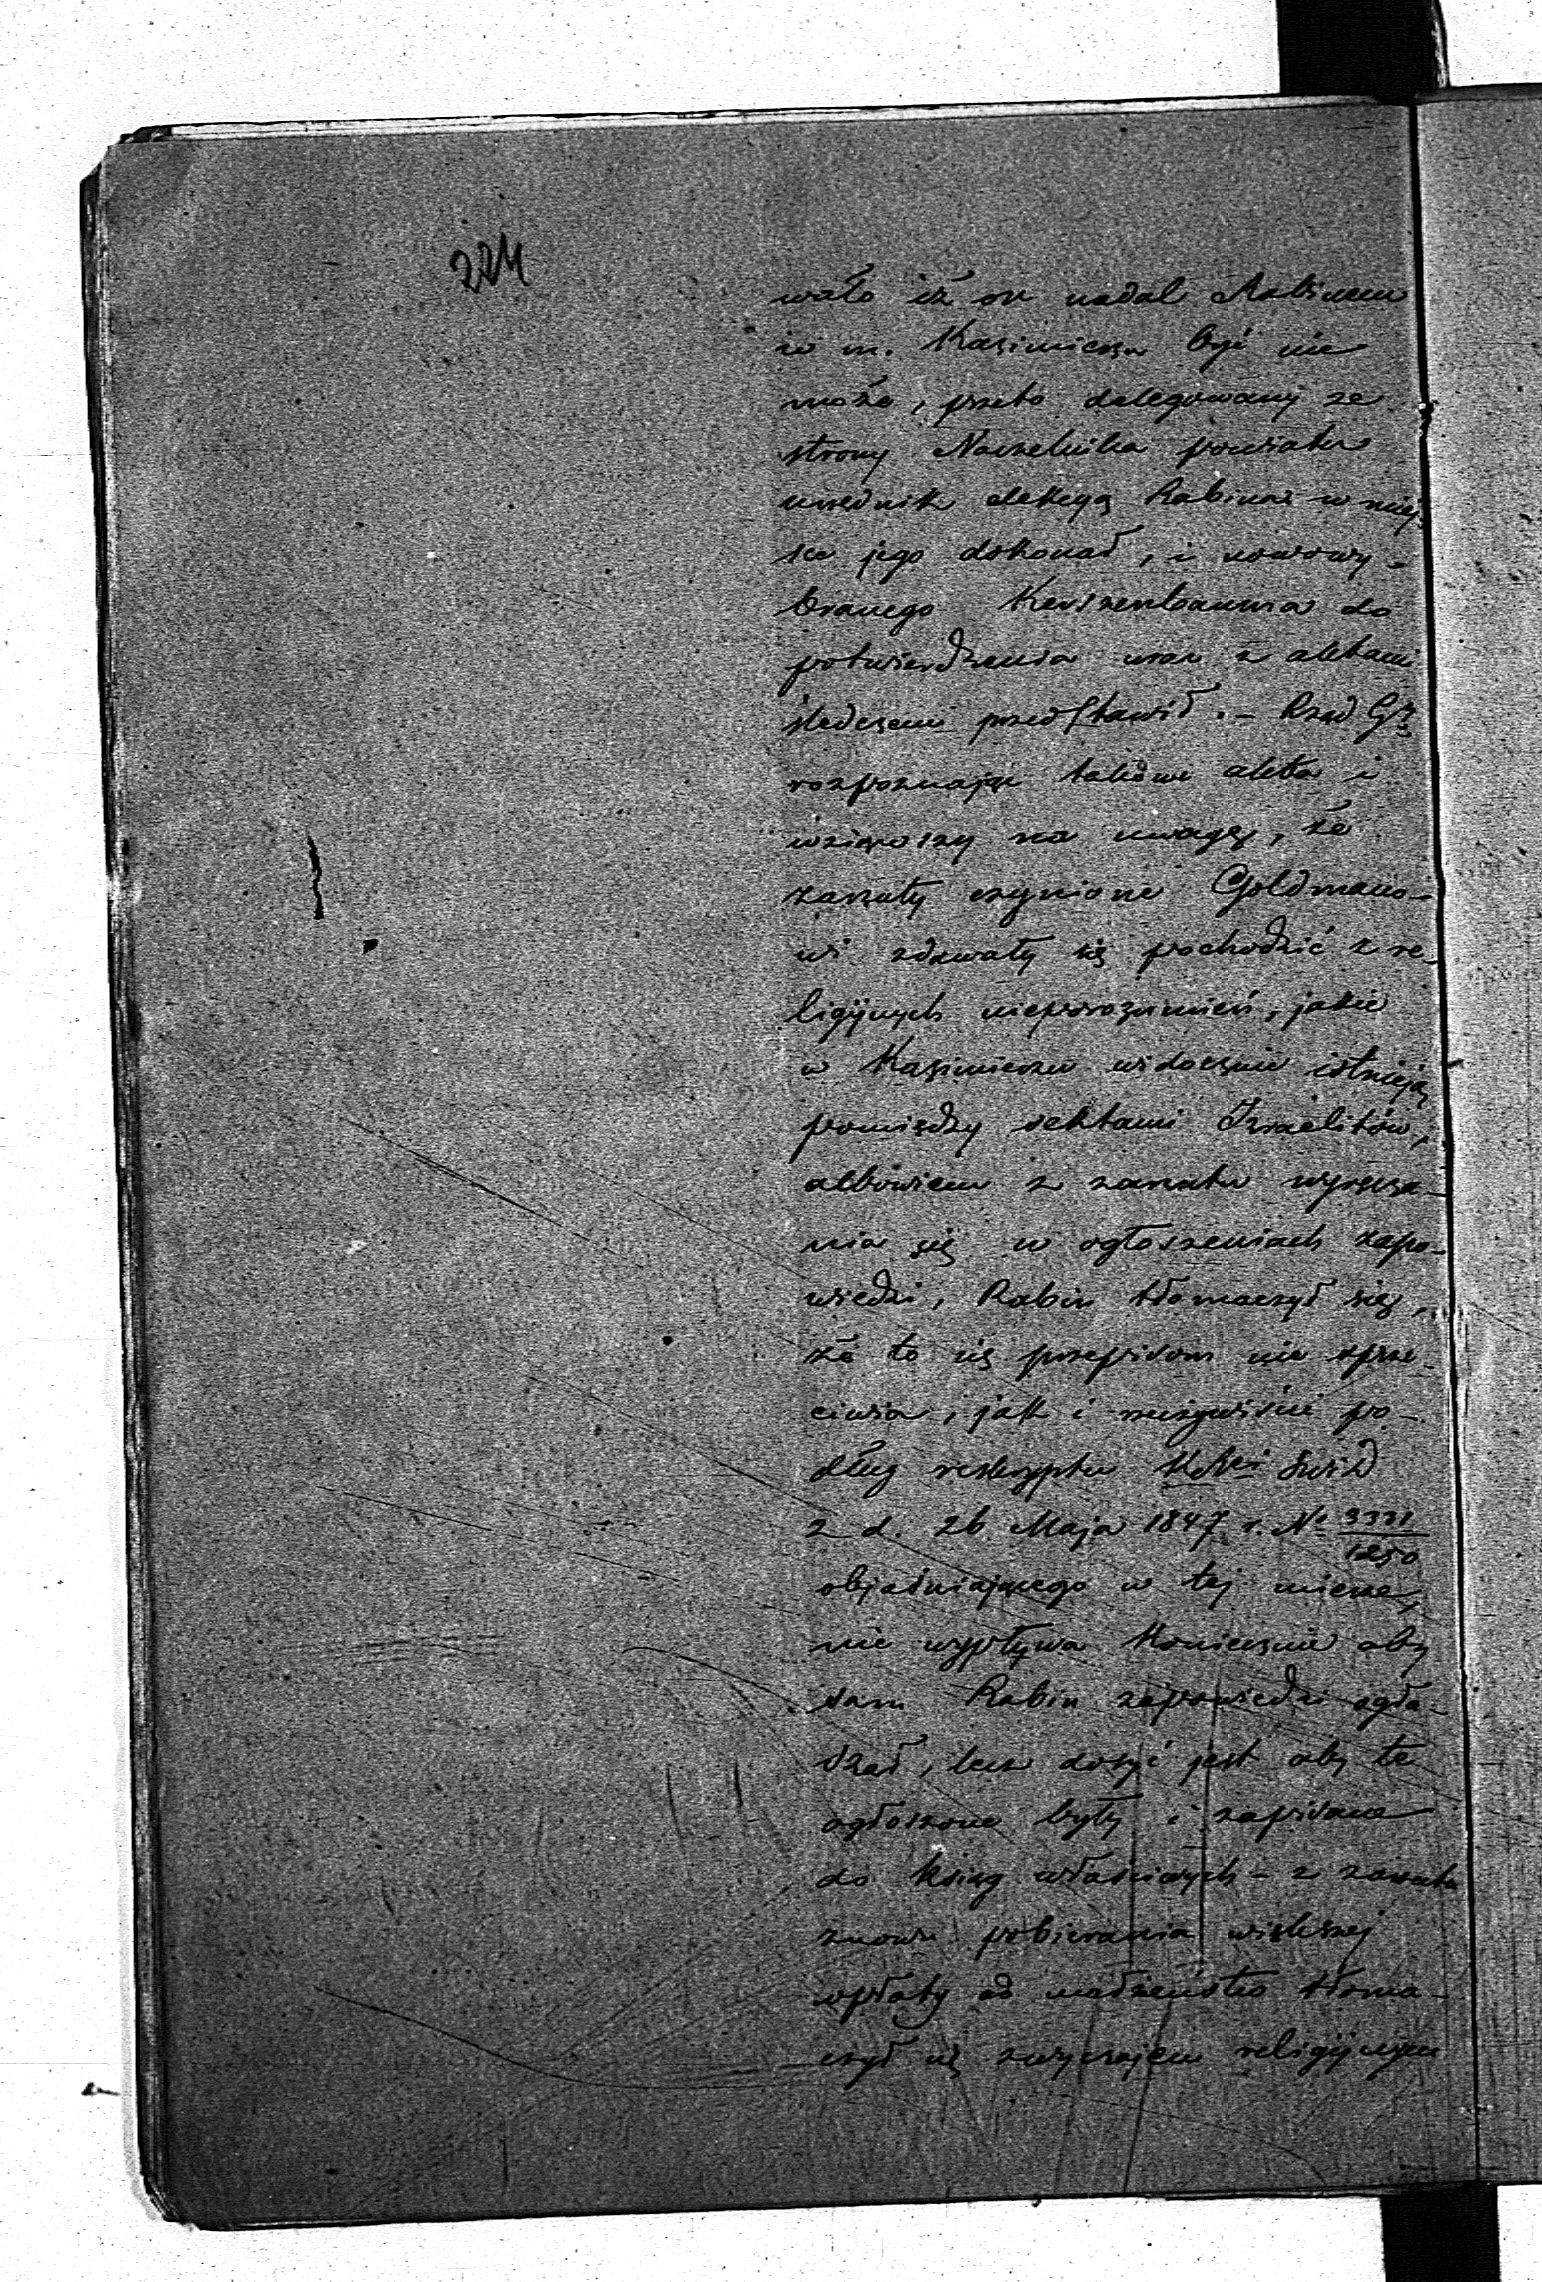 224
wało iż on nadal Rabinem
w m. Kazimierzu być nie
może, przeto delegowany ze
strony Naczelnika powiatu
urzędnik elekcyą Rabina w miej
sce jego dokonał, i nowowy-
branego Kerszenbauma do
potwierdzenia wraz z aktami
śledczemi przedstawił. – Rząd Gny
rozpoznając takowe akta i
wziąwszy na uwagę, że
zarzuty czynione Goldmano-
wi zdawały się pochodzić z re-
ligijnych nieporozumień, jakie
w Kazimierzu widocznie istnieją
pomiędzy sektami Izraelitów,
albowiem z zarzutu wyręcza-
nia się w ogłoszeniach zapo-
wiedzi, Rabin tłomaczył się,
że to się przepisom nie sprze-
ciwia, jak i rzeczywiście po-
dług reskryptu
z d. 26 Maja 1847 r. No 3331/1250
objaśniającego w tej mierze,
nie wypływa koniecznie aby
sam Rabin zapowiedzi ogła-
szał, lecz dosyć jest aby te
ogłoszone były i zapisane
do ksiąg właściwych – z zarzutu
znowu pobierania większej
opłaty od małżeństw tłoma-
czył się zwyczajem religijnym